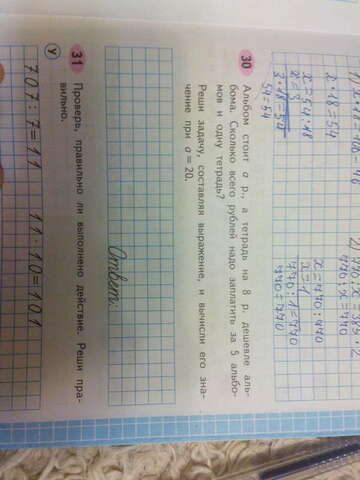 x · 18 = 54
x = 54 : 18
x = 3
3 · 18 = 54
54 = 54
770 : x = 770
x = 770 : 770
x = 1
770 : 1 = 770
770 = 770
30 Альбом стоит а р., а тетрадь на 8 р. дешевле аль-
бома. Сколько всего рублей надо заплатить за 5 альбо-
мов и одну тетрадь?
Реши задачу, составляя выражение, и вычисли его зна-
чение при а = 20.
Ответ:
31 Проверь, правильно ли выполнено действие. Реши пра-
вильно.
У
707 : 7 = 11 11 · 10 = 101